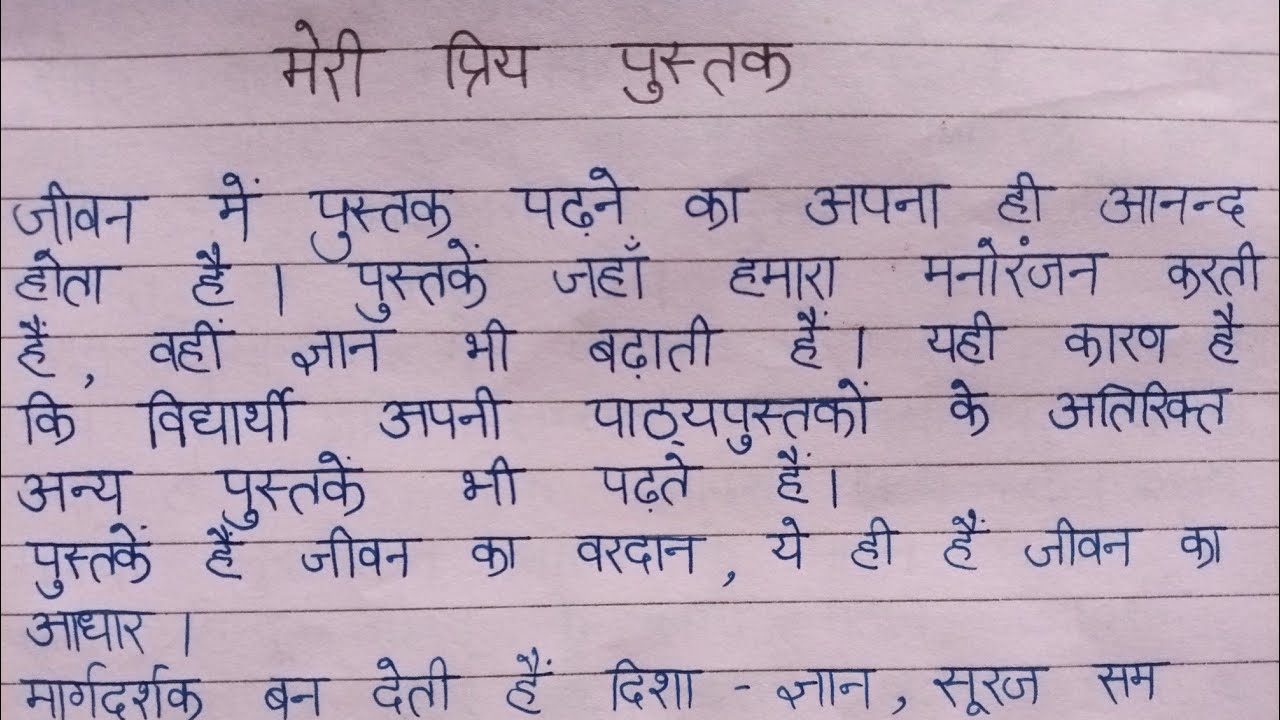 मेरी प्रिय पुस्तक
जीवन में पुस्तक पढ़ने का अपना ही आनन्द
होता है । पुस्तकें जहाँ हमारा मनोरंजन करती
हैं, वहीं ज्ञान भी बढ़ाती हैं । यही कारण है
कि विद्यार्थी अपनी पाठ्यपुस्तकों के अतिरिक्त
अन्य पुस्तकें भी पढ़ते हैं ।
पुस्तकें हैं जीवन का वरदान, ये ही हैं जीवन का
आधार ।
मार्गदर्शक बन देती हैं दिशा - ज्ञान, सूरज सम